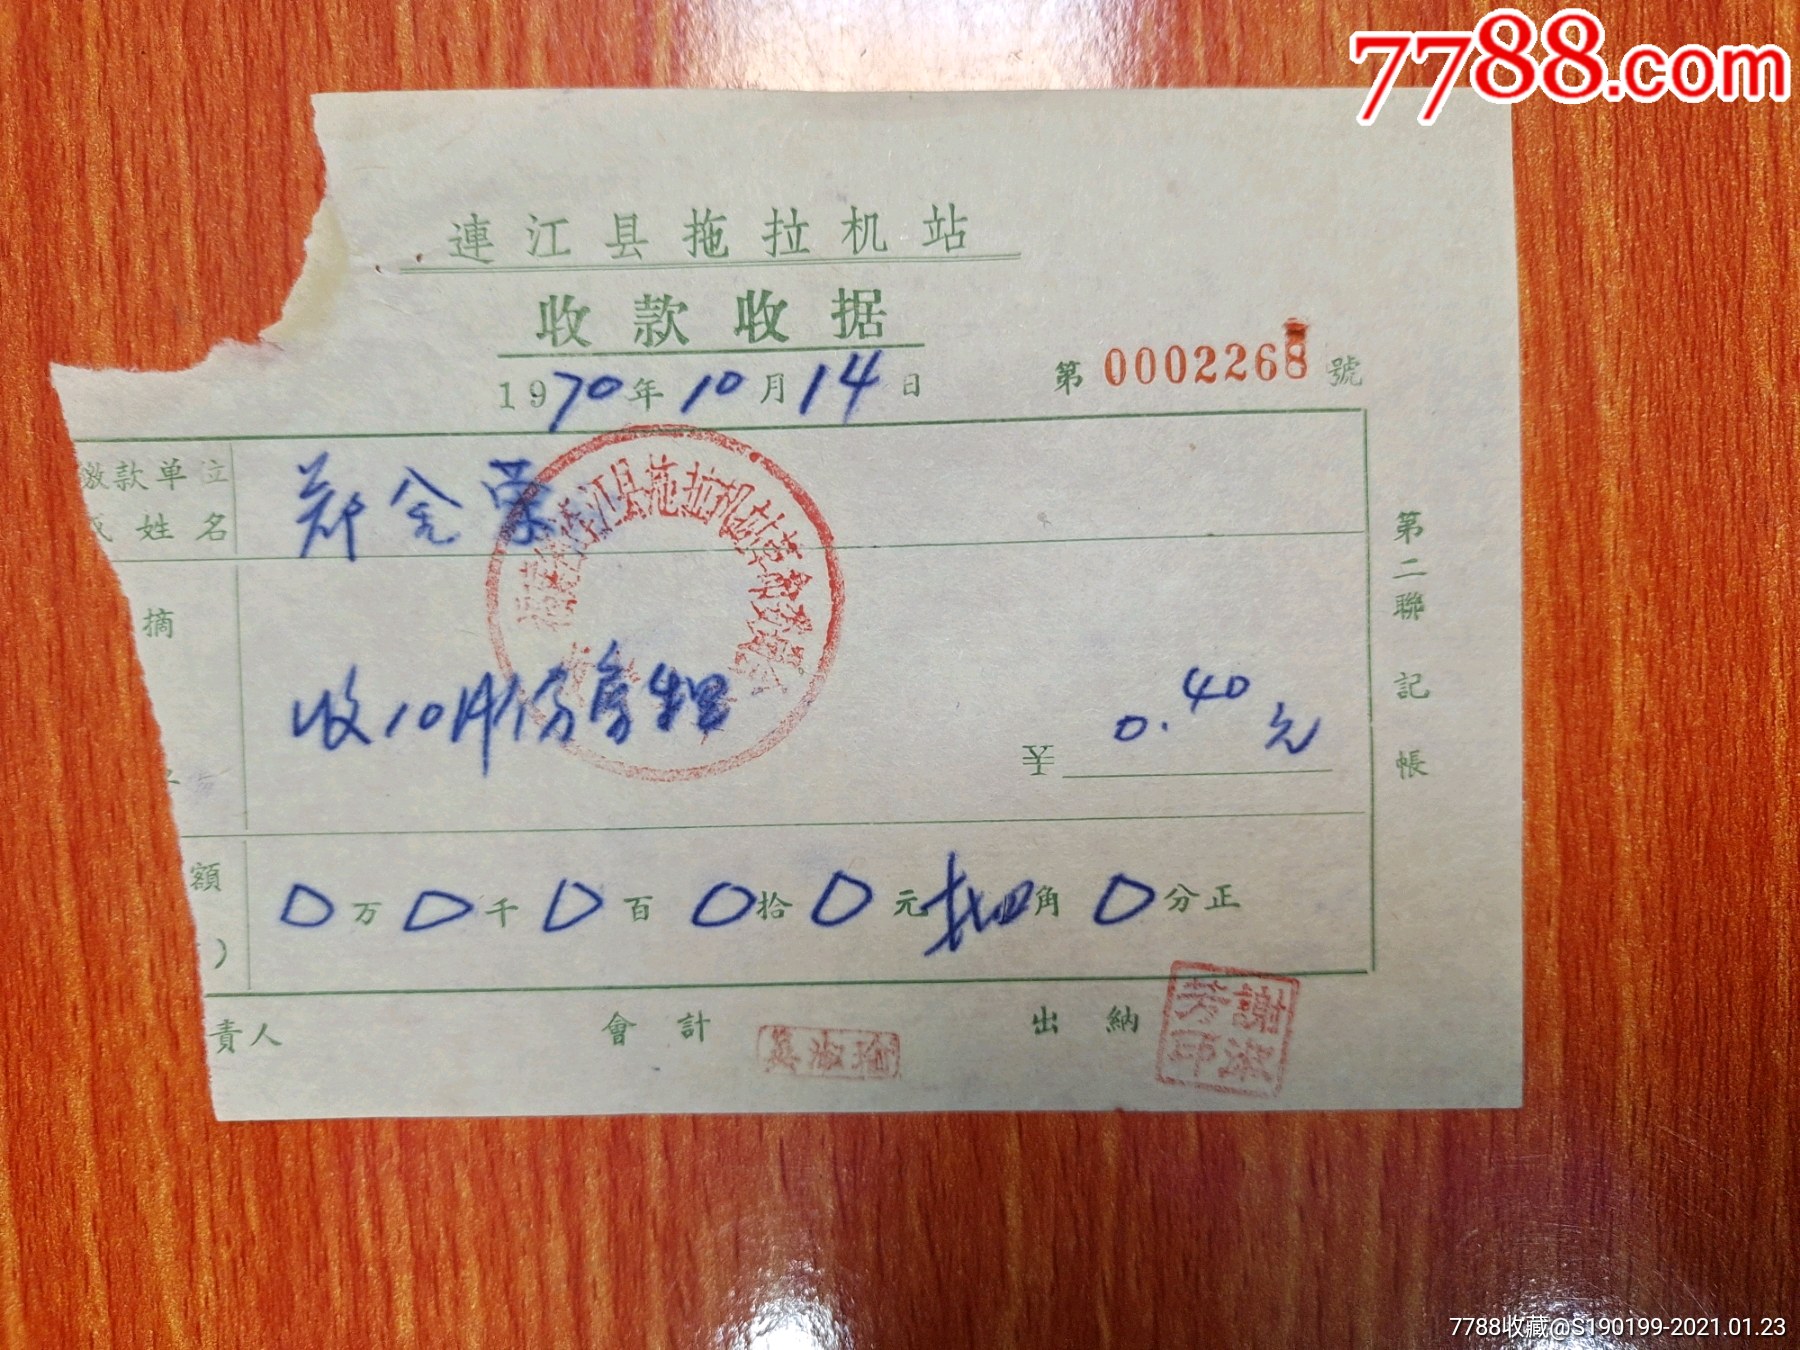 7788.com
連江县拖拉机站
收款收据
1970年10月14日
第0002268號
缴款单位
或姓名
郑金荣
江县拖拉机站革命委员会
摘
收10月份房租
¥ 0.40元
額
)
0万0千0百0拾0元肆角0分正
責人
會計
淑瑜
出納
謝淑芳印
第二聯 記帳
7788收藏@S190199-2021.01.23